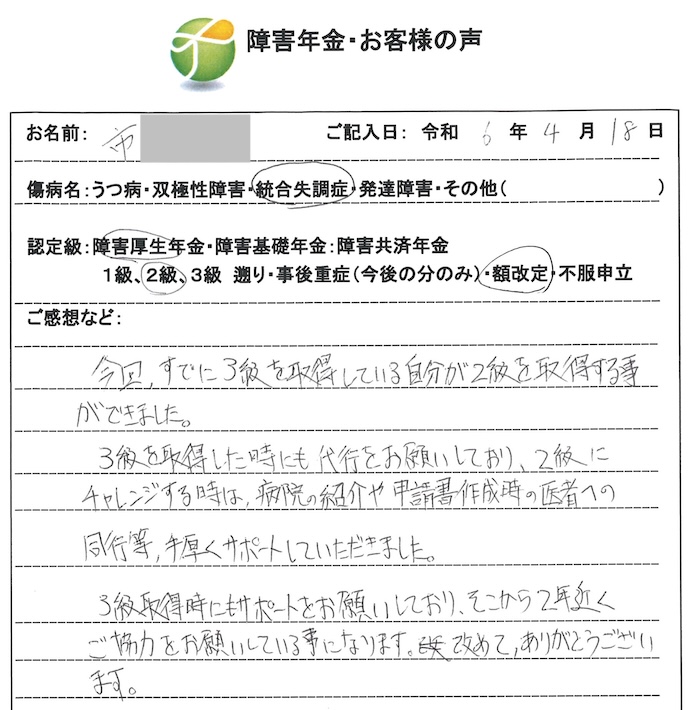 障害年金・お客様の声
お名前: 市 ご記入日: 令和 6 年 4 月 18 日
傷病名:うつ病・双極性障害・統合失調症・発達障害・その他( )
認定級:障害厚生年金・障害基礎年金:障害共済年金
1級、2級、3級 遡り・事後重症(今後の分のみ)・額改定・不服申立
ご感想など:
今回、すでに3級を取得している自分が2級を取得する事
ができました。
3級を取得した時にも代行をお願いしており、2級に
チャレンジする時は、病院の紹介や申請書作成時の医者への
同行等、手厚くサポートしていただきました。
3級取得時にもサポートをお願いしており、そこから2年近く
ご協力をお願いしている事になります。改めて、ありがとうござい
ます。